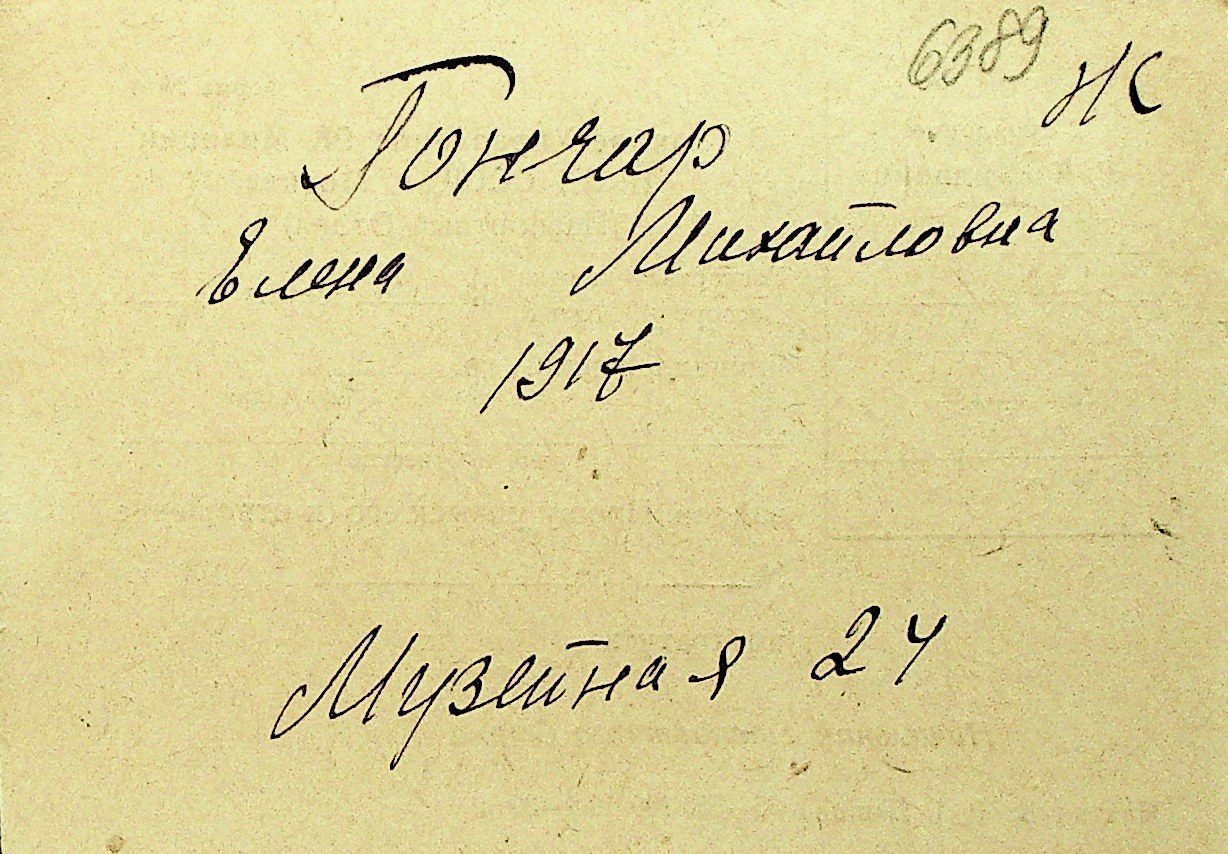 6389 Ж
Гончар
Елена Михайловна
1917
Музейная 24